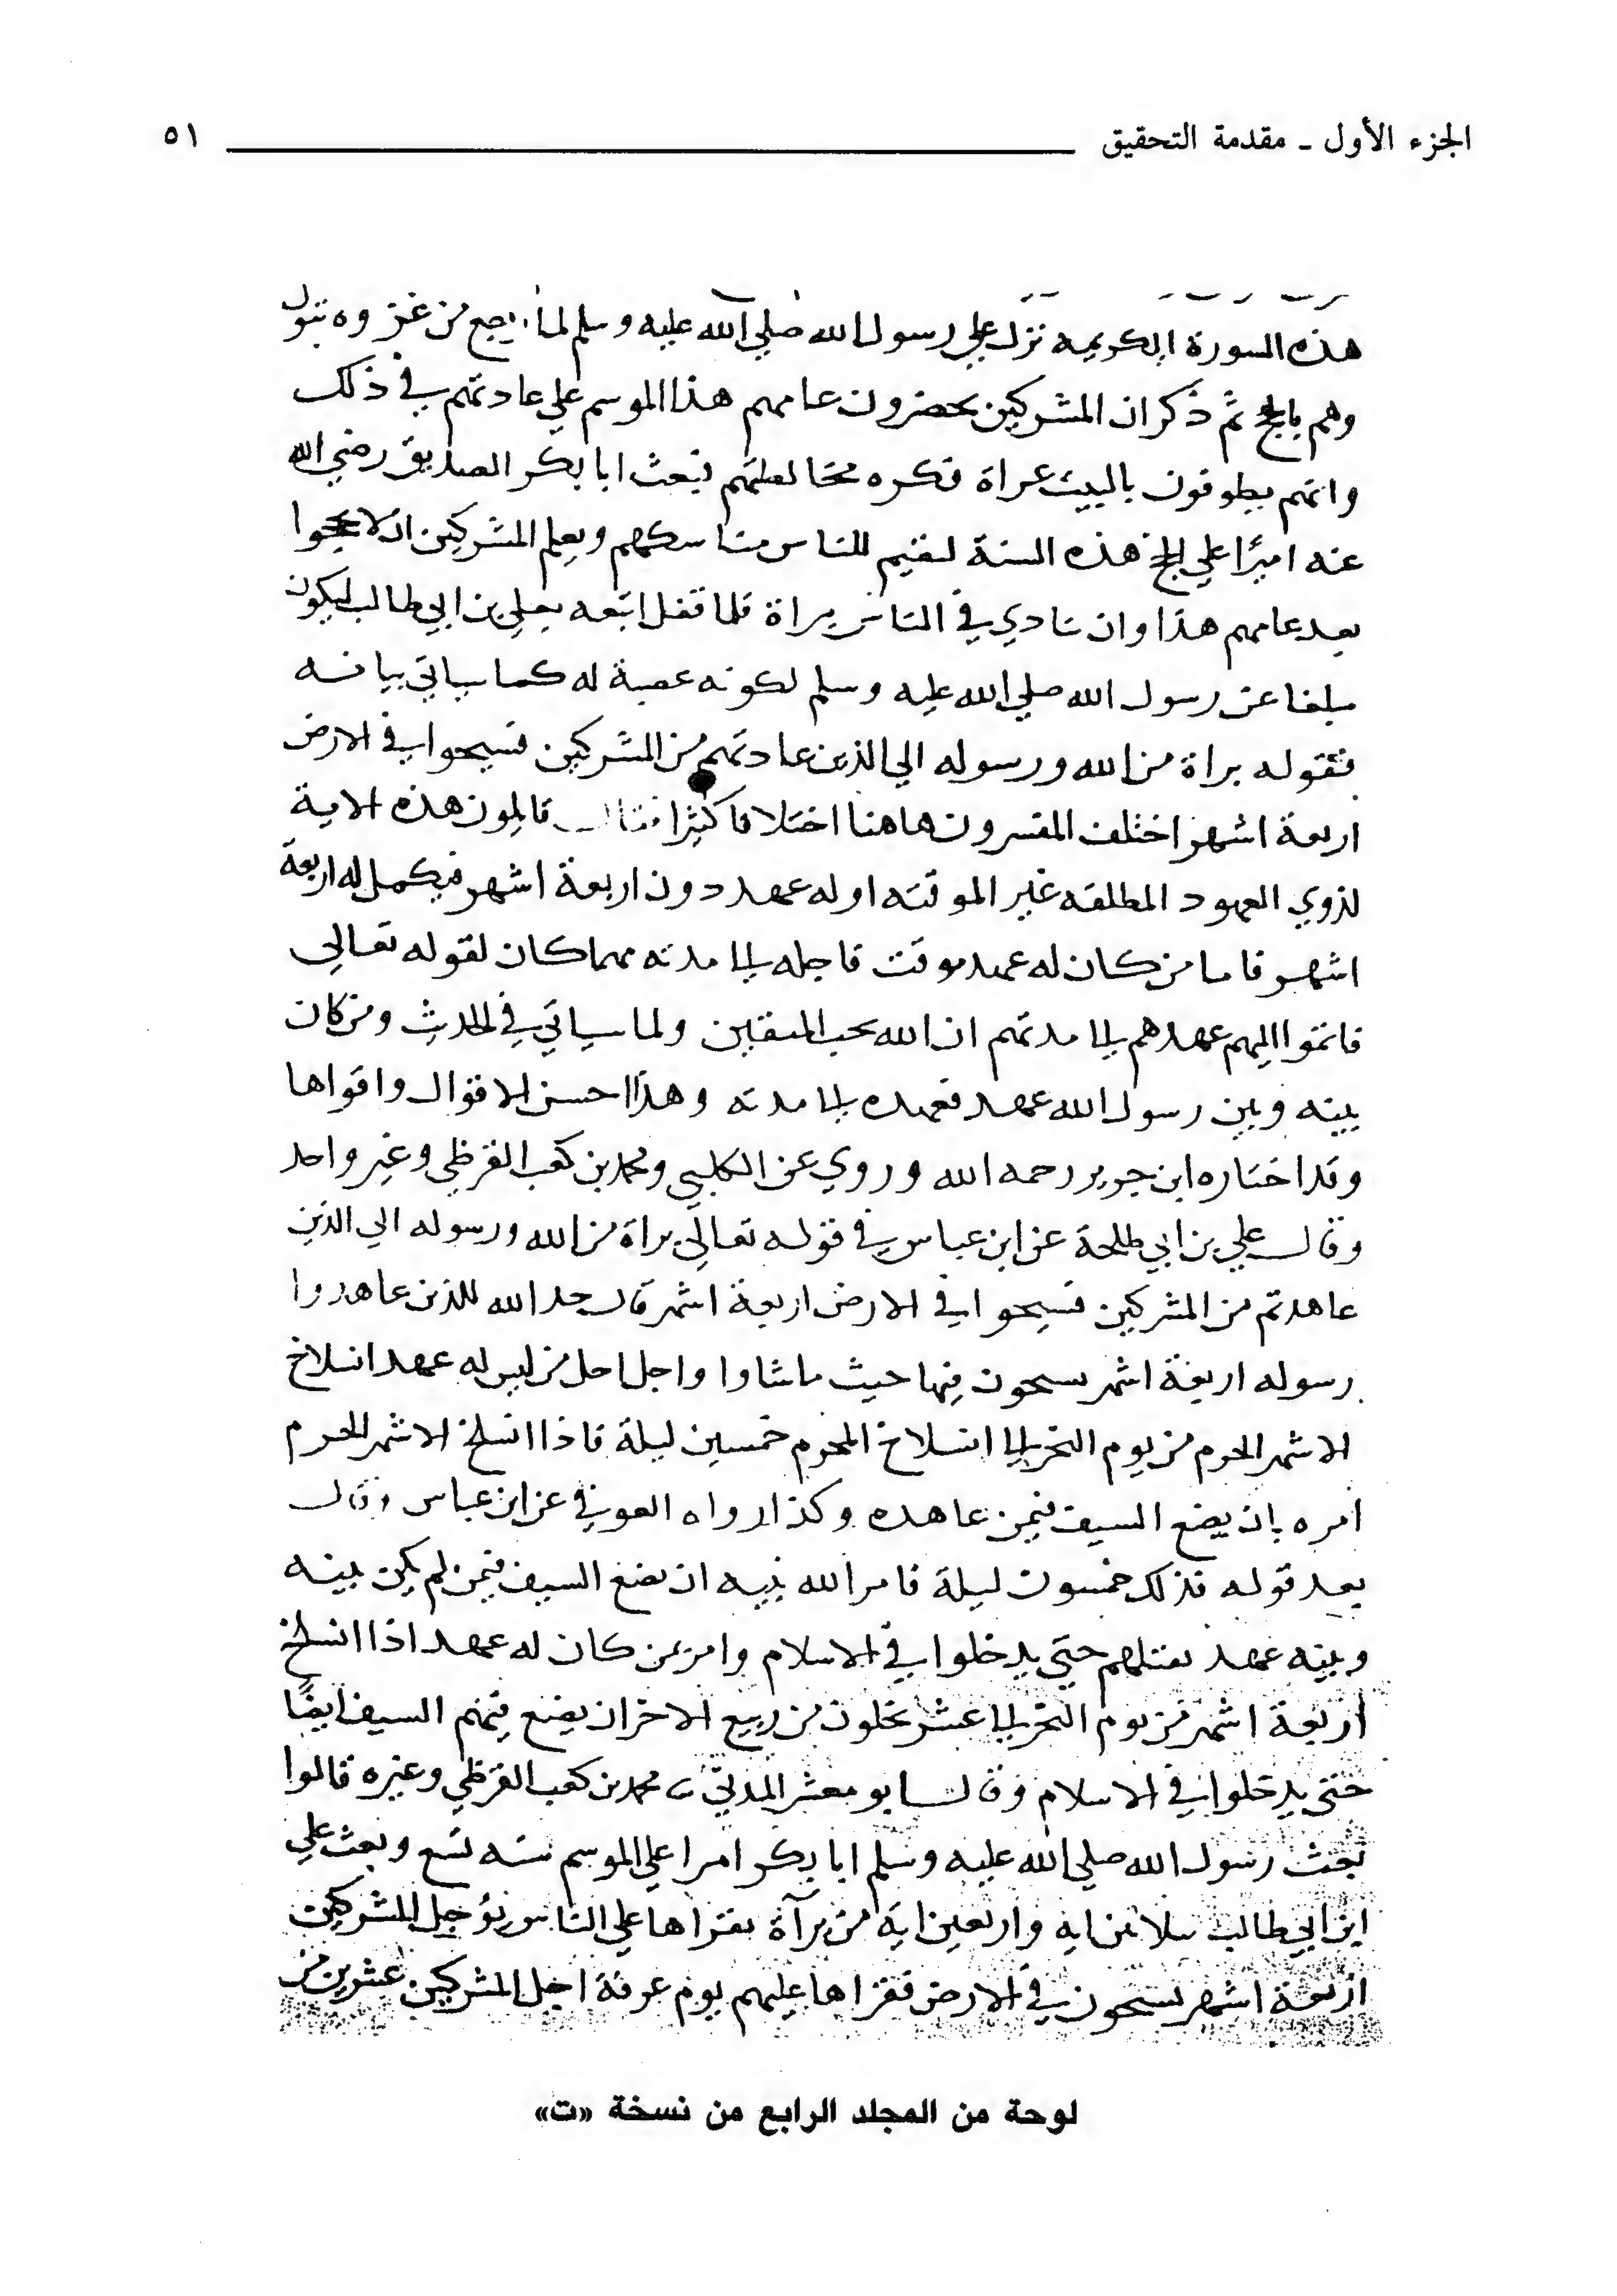 الجزء الأول ـ مقدمة التحقيق ٥١
هذه السورة الكريمة نزل علي رسول الله صلي الله عليه وسلم لما رجع من غزوه تبوك
وهم بالحج ثم ذكر ان المشركين يحضرون عامهم هذا الموسم علي عادتهم في ذلك
وانهم يطوفون بالبيت عراة فكره مخالطتهم فبعث ابا بكر الصديق رضي الله
عنه اميرا علي الحج هذه السنة ليقيم للناس مناسكهم ويعلم المشركين ان لا يحجوا
بعد عامهم هذا وان ينادي في الناس براة فلما قفل اتبعه بعلي بن ابي طالب ليكون
مبلغا عن رسول الله صلي الله عليه وسلم لكونه عصبة له كما سياتي بيانه
فقوله براة من الله ورسوله الي الذين عاهدتم من المشركين فسيحوا في الارض
اربعة اشهر اختلف المفسرون هاهنا اختلافا كثيرا فقال قايلون هذه الاية
لذوي العهود المطلقه غير الموقته او له عهد دون اربعة اشهر فيكمل له اربعة
اشهر فاما من كان له عهد موقت فاجله الى مدته مهما كان لقوله تعالي
فاتموا اليهم عهدهم الى مدتهم ان الله يحب المتقين ولما سياتي في الحديث ومن كان
بينه وبين رسول الله عهد فعهده الى مدته وهذا احسن الاقوال واقواها
وقد اختاره ابن جرير رحمه الله وروي عن الكلبي ومحمد بن كعب القرظي وغير واحد
وقال علي بن ابي طلحة عن ابن عباس في قوله تعالي براة من الله ورسوله الي الذين
عاهدتم من المشركين فسيحوا في الارض اربعة اشهر قال حد الله للذين عاهدوا
رسوله اربعة اشهر يسيحون فيها حيث ماشاوا واجل اجل من ليس له عهد انسلاخ
الاشهر الحرم من يوم النحر الى انسلاخ المحرم خمسين ليلة فاذا انسلخ الاشهر الحرم
امره بان يضع السيف فيمن عاهده وكذا رواه العوفي عن ابن عباس وقال
بعد قوله فذلك خمسون ليلة فامر الله نبيه ان يضع السيف فيمن لم يكن بينه
وبينه عهد يقتلهم حتي يدخلوا في الاسلام وامر بمن كان له عهد اذا انسلخ
اربعة اشهر من يوم النحر الى عشر يخلون من ربيع الاخر ان يضع فيهم السيف ايضا
حتي يدخلوا في الاسلام وقال ابو معشر المدني محمد بن كعب القرظي وغيره قالوا
بعث رسول الله صلي الله عليه وسلم ابا بكر اميرا علي الموسم سنه تسع وبعث علي
ابن ابي طالب بثلاثين ايه واربعين اية من برآة يقراها علي الناس يؤجل المشركين
اربعة اشهر يسيحون في الارض فقراها عليهم يوم عرفة اجل المشركين عشرين من
لوحة من المجلد الرابع من نسخة «ت»